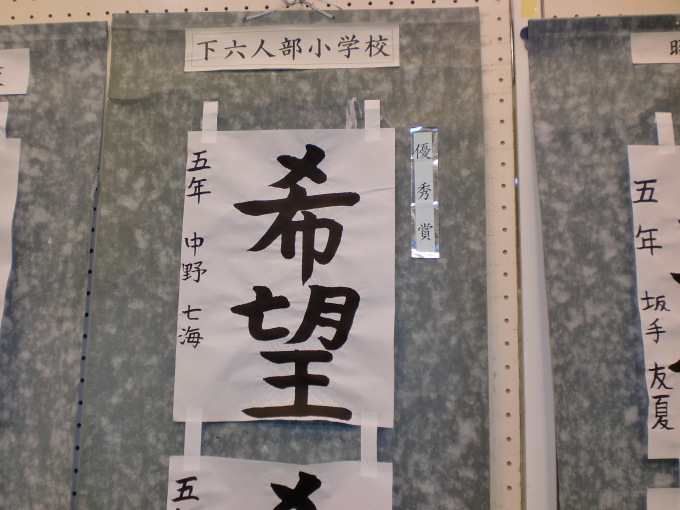 下六人部小学校
優秀賞
希望
五年 中野 七海
五年 坂手 友夏
五